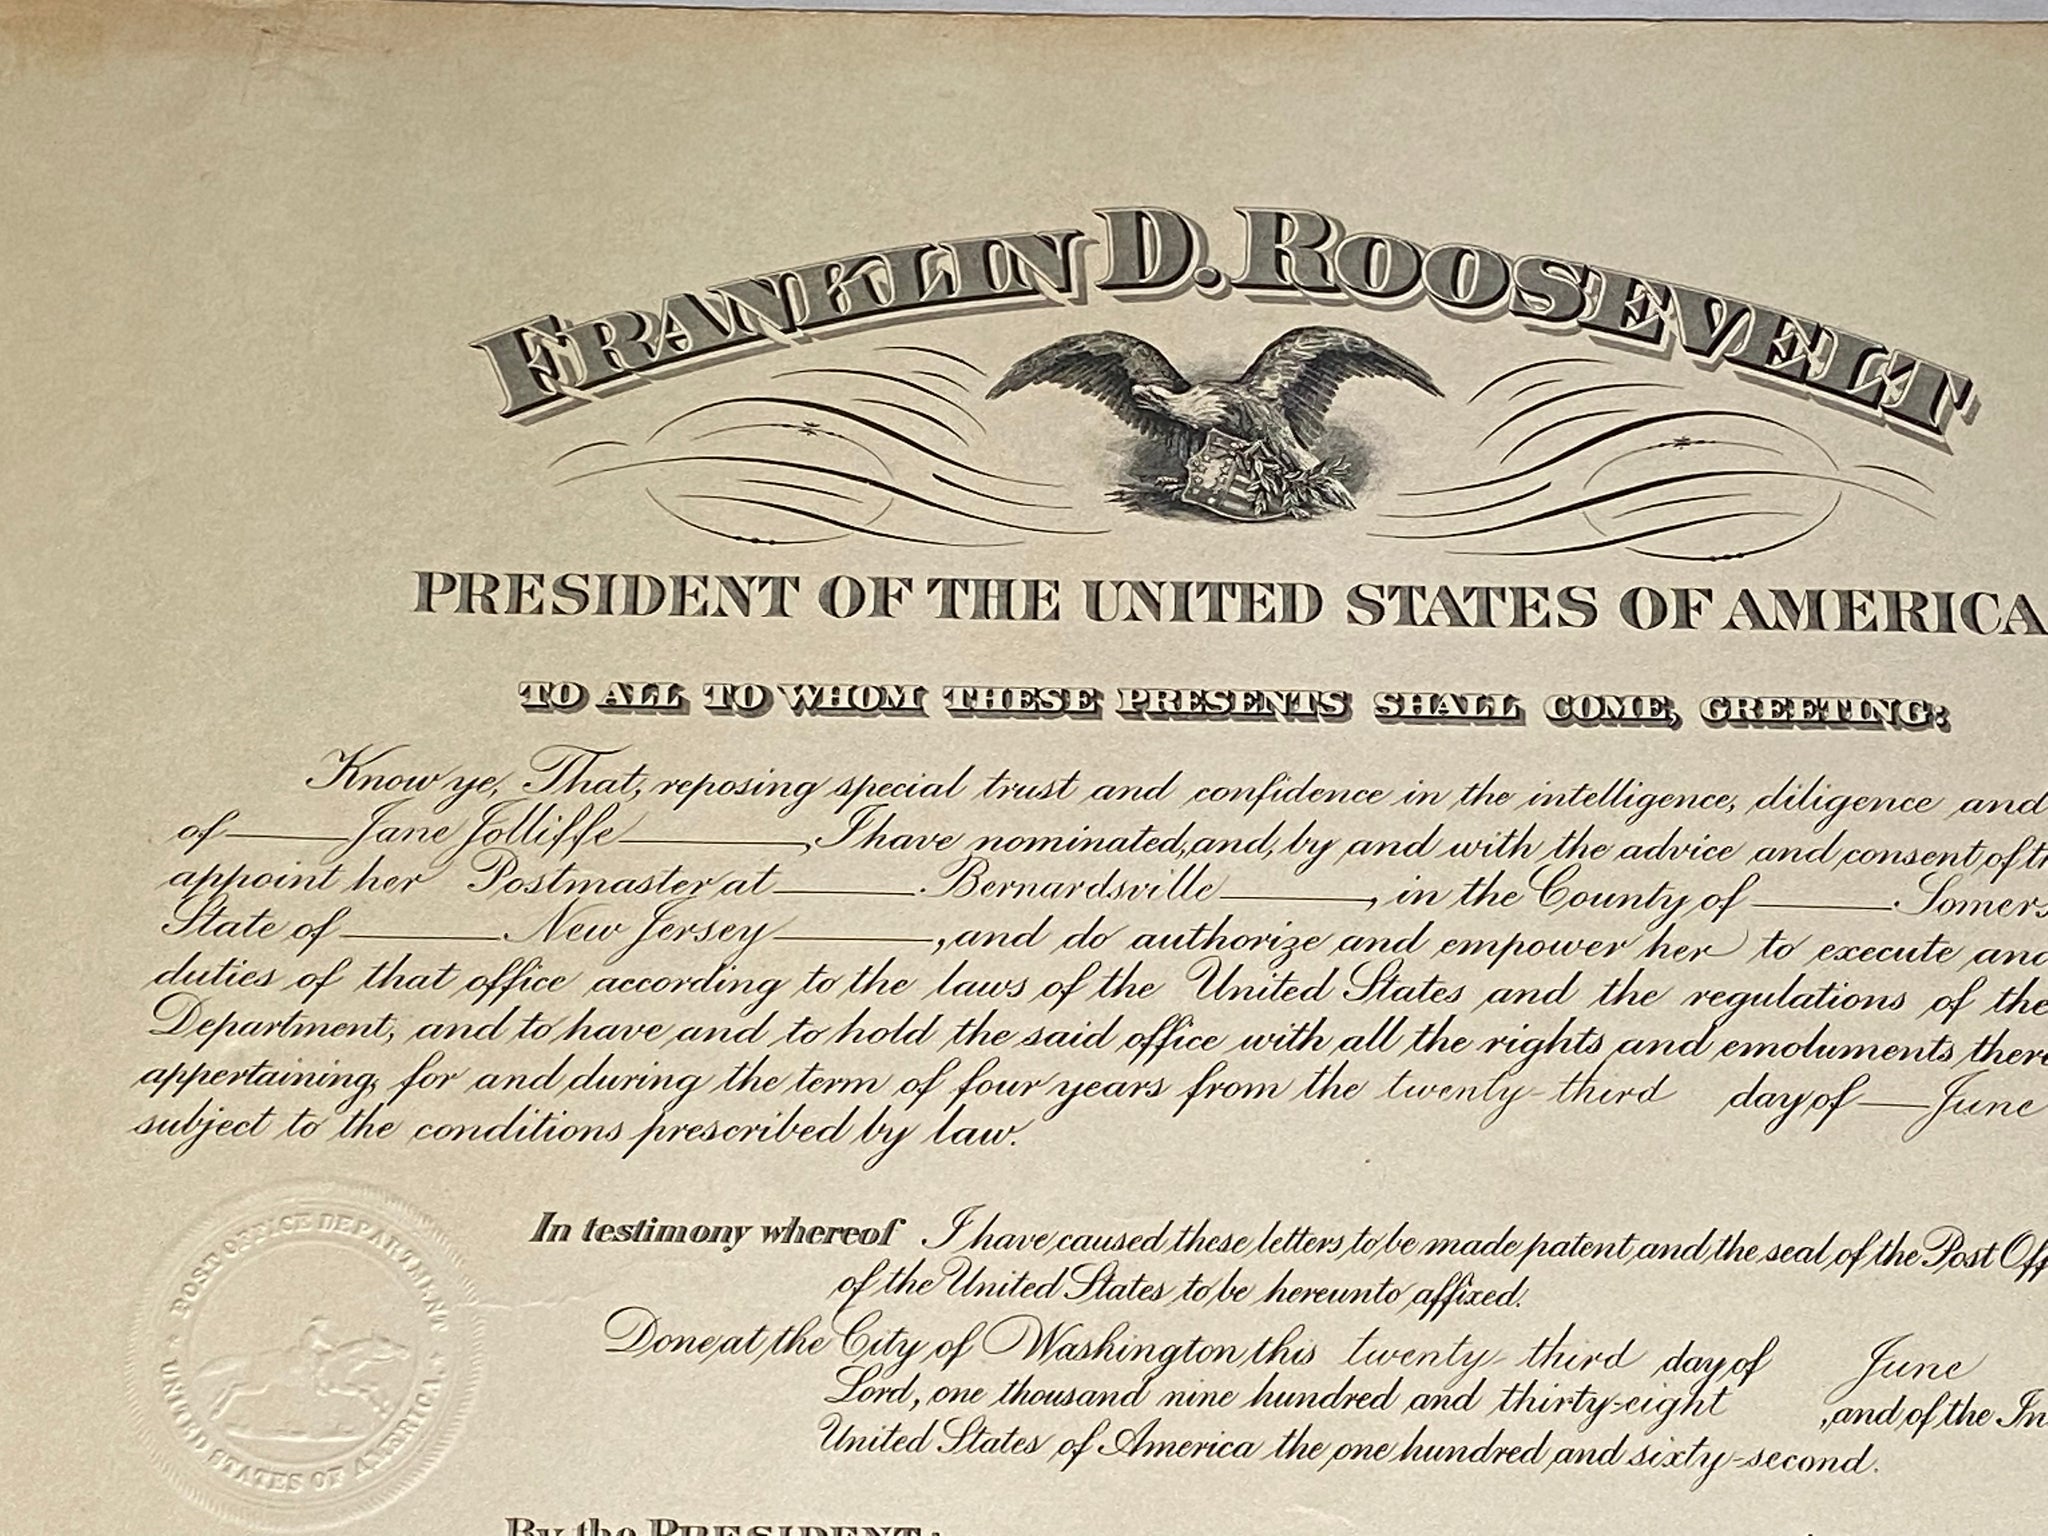 FRANKLIN D. ROOSEVELT
PRESIDENT OF THE UNITED STATES OF AMERICA
TO ALL TO WHOM THESE PRESENTS SHALL COME, GREETING:
Know ye, That, reposing special trust and confidence in the intelligence, diligence and
of Jane Jolliffe, I have nominated, and, by and with the advice and consent of
appoint her Postmaster at Bernardsville, in the County of Somers
State of New Jersey, and do authorize and empower her to execute and
duties of that office according to the laws of the United States and the regulations of the
Department, and to have and to hold the said office with all the rights and emoluments there
appertaining, for and during the term of four years from the twenty-third day of June
subject to the conditions prescribed by law.
In testimony whereof I have caused these letters to be made patent and the seal of the Post Off
of the United States to be hereunto affixed.
Done at the City of Washington this twenty-third day of June
Lord, one thousand nine hundred and thirty-eight, and of the In
United States of America the one hundred and sixty-second.
POST OFFICE DEPARTMENT
UNITED STATES OF AMERICA.
By the PRESIDENT: